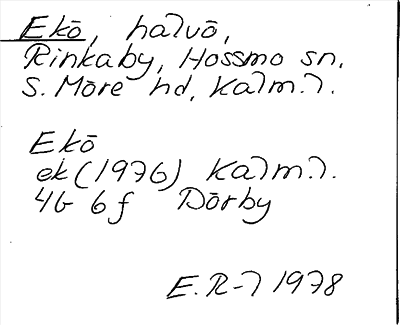 Ekö, halvö,
Rinkaby, Hossmo sn,
S. Möre hd, Kalm. l.
Ekö
ek (1976) Kalm. l.
4G 6f Dörby
E. R-l 1978